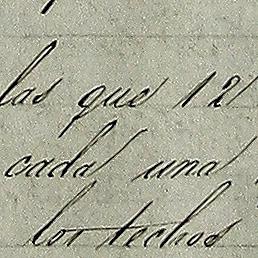 las que 12
cada una
los techos